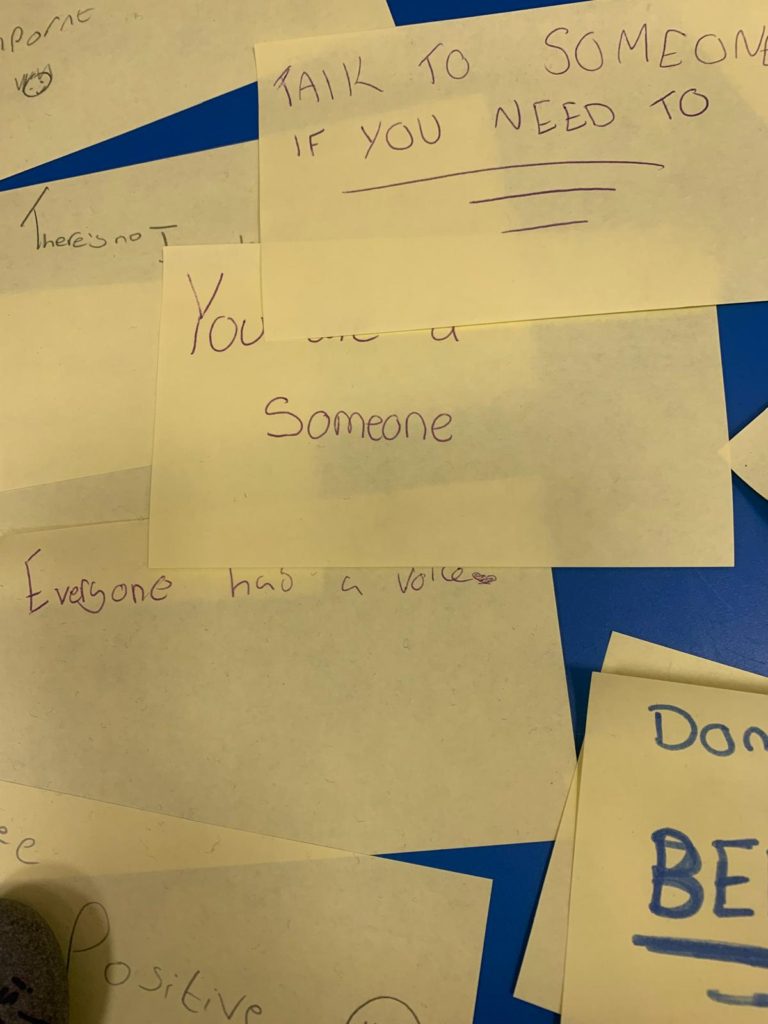 TALK TO SOMEONE
IF YOU NEED TO
There's no I
You are a
Someone
Everyone has a voice
Positive